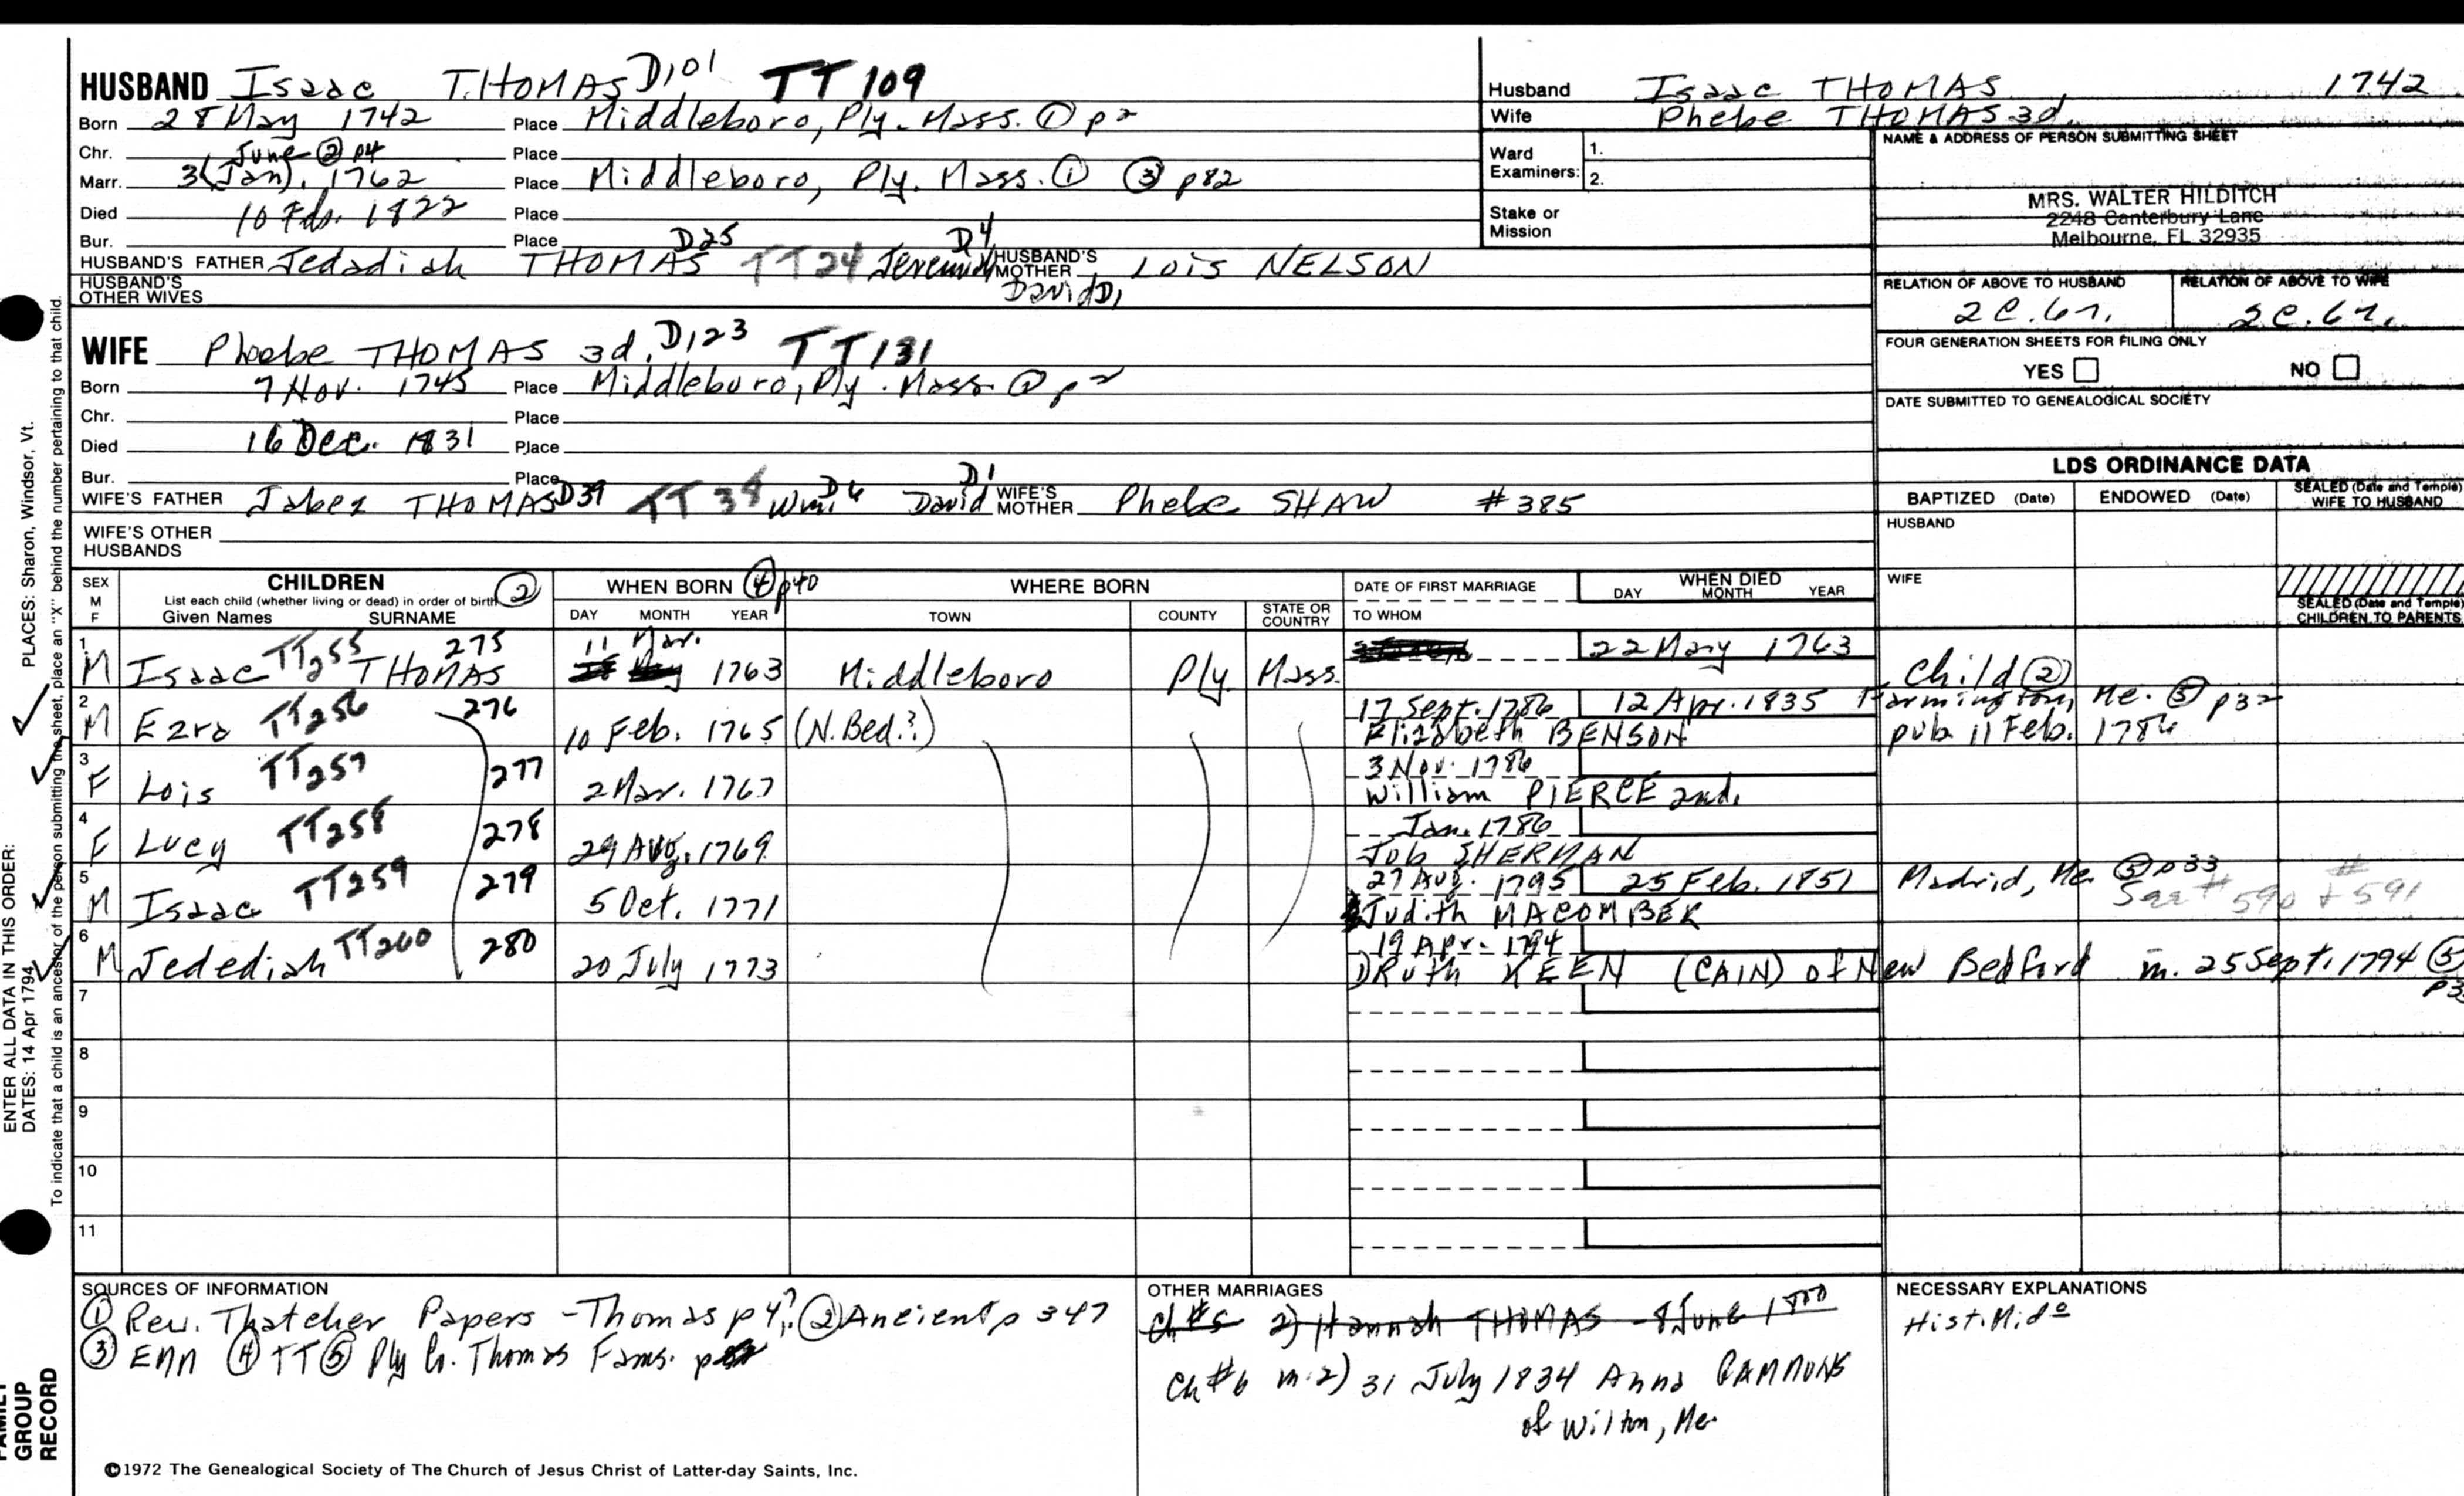 HUSBAND Isaac THOMAS D101 TT 109
Born 28 May 1742 Place Middleboro, Ply. Mass. ① p2
Chr. June ② p4 Place
Marr. 3 (Jan), 1762 Place Middleboro, Ply. Mass. ① ③ p82
Died 10 Feb. 1822 Place
Bur. Place
HUSBAND'S FATHER Jedadiah THOMAS D25 TT24 Jeremiah D4 David D1 HUSBAND'S MOTHER Lois NELSON
HUSBAND'S OTHER WIVES
WIFE Phoebe THOMAS 3d. D123 TT131
Born 7 Nov. 1745 Place Middleboro, Ply. Mass. ① p2
Chr. Place
Died 16 Dec. 1831 Place
Bur. Place
WIFE'S FATHER Jabez THOMAS D39 TT 38 Wm. D6 David D1 WIFE'S MOTHER Phebe SHAW #385
WIFE'S OTHER HUSBANDS
Husband Isaac THOMAS 1742
Wife Phebe THOMAS 3d.
Ward Examiners: 1.
2.
Stake or Mission
NAME & ADDRESS OF PERSON SUBMITTING SHEET
MRS. WALTER HILDITCH
2248 Canterbury Lane
Melbourne, FL 32935
RELATION OF ABOVE TO HUSBAND RELATION OF ABOVE TO WIFE
2C.6r. 2C.6r.
FOUR GENERATION SHEETS FOR FILING ONLY
YES NO
DATE SUBMITTED TO GENEALOGICAL SOCIETY
LDS ORDINANCE DATA
BAPTIZED (Date) ENDOWED (Date) SEALED (Date and Temple) WIFE TO HUSBAND
HUSBAND
WIFE
SEALED (Date and Temple) CHILDREN TO PARENTS
SEX M F
CHILDREN ②
List each child (whether living or dead) in order of birth
Given Names SURNAME
WHEN BORN ④ p40
DAY MONTH YEAR
WHERE BORN
TOWN COUNTY STATE OR COUNTRY
DATE OF FIRST MARRIAGE
TO WHOM
WHEN DIED
DAY MONTH YEAR
1 M Isaac TT255 THOMAS 275 11 Mar. 1763 Middleboro Ply. Mass. 22 May 1763 Child ②
2 M Ezra TT256 276 10 Feb. 1765 (N.Bed.?) 17 Sept. 1786 12 Apr. 1835 Farmington, Me. ⑤ p32
Elizabeth BENSON pub. 11 Feb. 1786
3 F Lois TT257 277 2 Mar. 1767 3 Nov. 1786
William PIERCE 2nd.
4 F Lucy TT258 278 29 Aug. 1769 Jan. 1786
Job SHERMAN
5 M Isaac TT259 279 5 Oct. 1771 27 Aug. 1795 25 Feb. 1851 Madrid, Me. ⑤ p33
Judith MACOMBER See # 590 + # 591
6 M Jedediah TT260 280 20 July 1773 19 Apr. 1794
1) Ruth KEEN (CAIN) of New Bedford m. 25 Sept. 1794 ⑤ p3
7
8
9
10
11
SOURCES OF INFORMATION
① Rev. Thatcher Papers - Thomas p4? ② Ancient p 347
③ EMM ④ TT ⑤ Ply Co. Thomas Fams.
OTHER MARRIAGES
Ch #5 2) Hannah THOMAS - 8 June 1800
Ch #6 m. 2) 31 July 1834 Anna GAMMONS
of Wilton, Me.
NECESSARY EXPLANATIONS
Hist. Mido
©1972 The Genealogical Society of The Church of Jesus Christ of Latter-day Saints, Inc.
ENTER ALL DATA IN THIS ORDER:
DATES: 14 Apr 1794 PLACES: Sharon, Windsor, Vt.
To indicate that a child is an ancestor of the person submitting the sheet, place an "X" behind the number pertaining to that child.
FAMILY
GROUP
RECORD